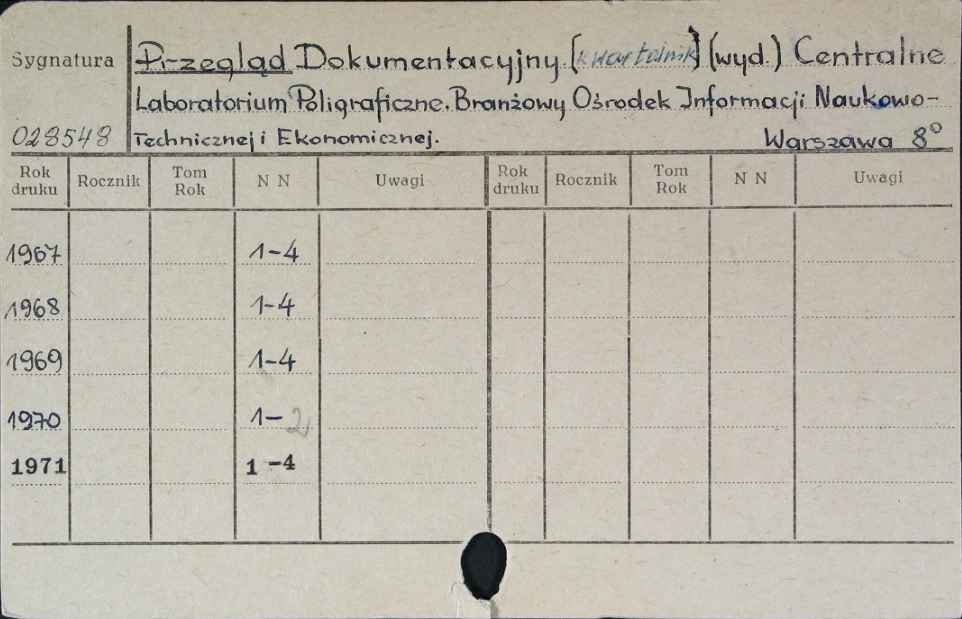 Sygnatura Przegląd Dokumentacyjny [kwartalnik] (wyd.) Centralne
Laboratorium Poligraficzne. Branżowy Ośrodek Informacji Naukowo-
028548 Technicznej i Ekonomicznej. Warszawa 8°
Rok druku Rocznik Tom Rok N N Uwagi Rok druku Rocznik Tom Rok N N Uwagi
1967 1-4
1968 1-4
1969 1-4
1970 1-2
1971 1-4